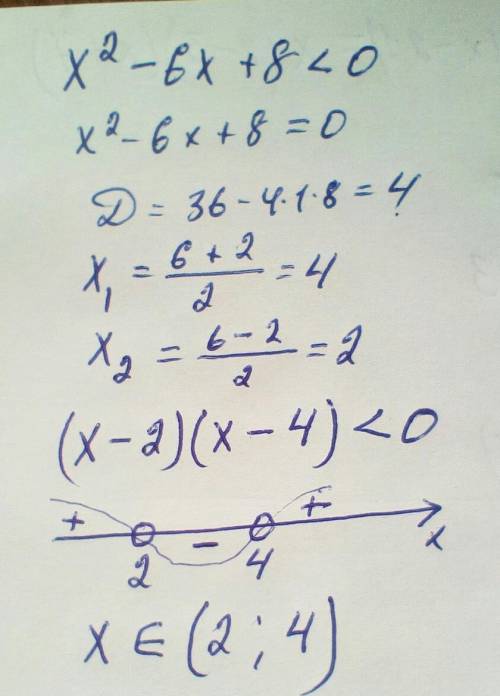 x² - 6x + 8 < 0
x² - 6x + 8 = 0
D = 36 - 4·1·8 = 4
x₁ = (6 + 2)/2 = 4
x₂ = (6 - 2)/2 = 2
(x - 2)(x - 4) < 0
+ - +
2 4 x
x ∈ (2; 4)